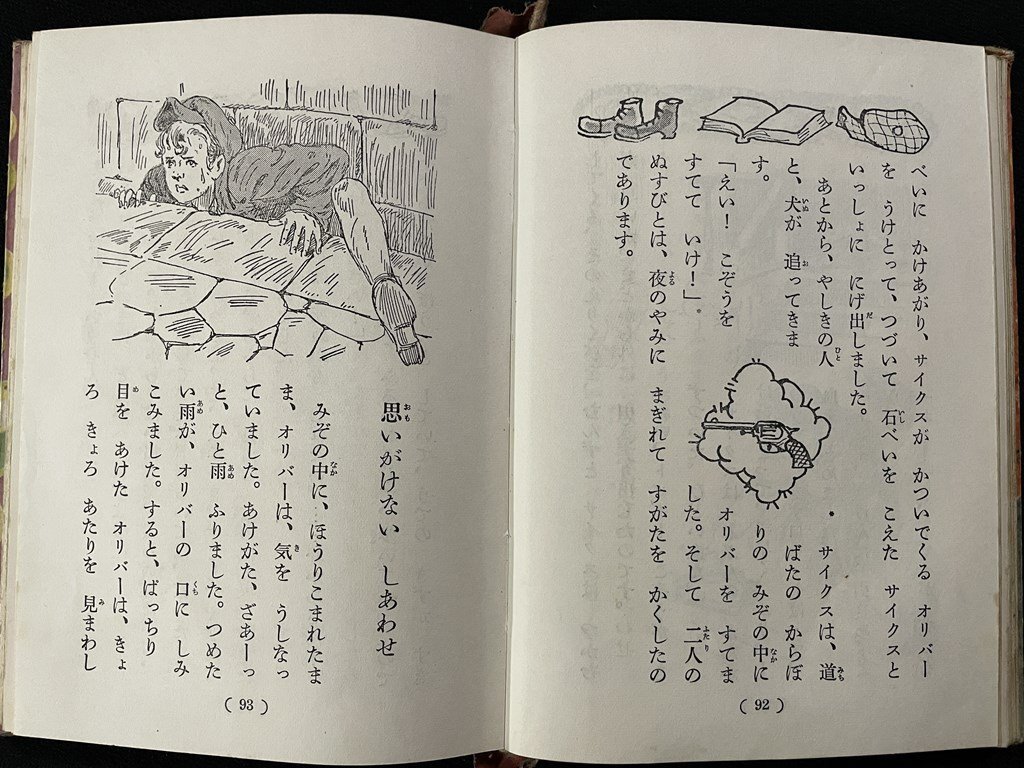 べいに　かけあがり、サイクスが　かついでくる　オリバー
を　うけとって、つづいて　石べいを　こえた　サイクスと
いっしょに　にげ出しました。
　あとから、やしきの人
と、犬が　追ってきま
す。
「えい！　こぞうを
すてて　いけ！」
　サイクスは、道
ばたの　からぼ
りの　みぞの中に
オリバーを　すてま
した。そして　二人の
ぬすびとは、夜のやみに　まぎれて　すがたを　かくしたの
であります。
( 92 )
思いがけない　しあわせ
　みぞの中に、ほうりこまれたま
ま、オリバーは、気を　うしなっ
ていました。あけがた、ざあーっ
と、ひと雨　ふりました。つめた
い雨が、オリバーの　口に　しみ
こみました。すると、ぱっちり
目を　あけた　オリバーは、きょ
ろ　きょろ　あたりを　見まわし
( 93 )